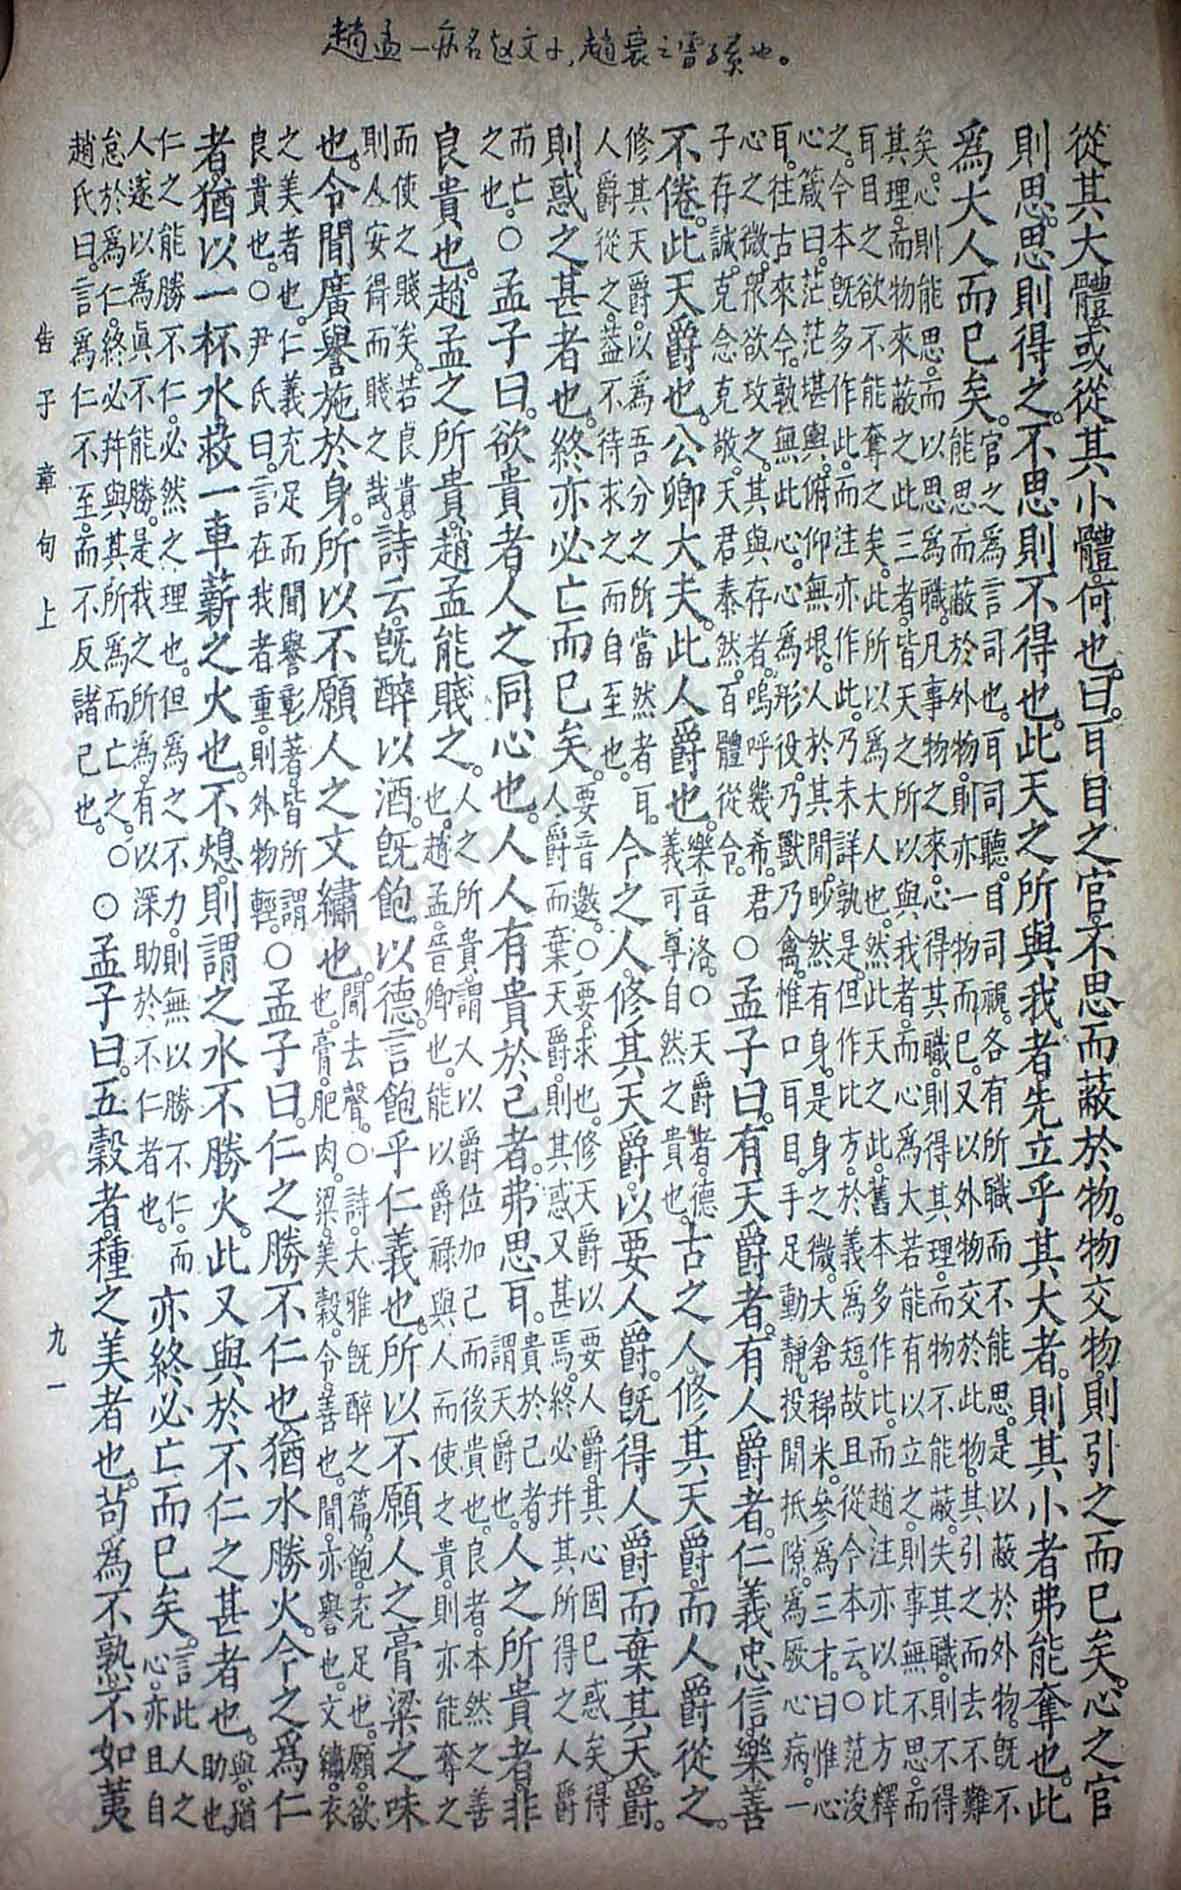 趙孟一亦名赵文子，趙衰之曾孫也。
從其大體或從其小體何也。曰。耳目之官。不思而蔽於物。物交物。則引之而已矣。心之官
則思。思則得之。不思則不得也。此天之所與我者。先立乎其大者。則其小者弗能奪也。此
爲大人而已矣。
官之爲言司也。耳司聽。目司視。各有所職而不能思。是以蔽於外物。既不
能思而蔽於外物。則亦一物而已。又以外物交於此物。其引之而去不難
矣。心則能思。而以思爲職。凡事物之來。心得其職。則得其理。而物不能蔽。失其職。則不得
其理。而物來蔽之。此三者。皆天之所以與我者。而心爲大。若能有以立之。則事無不思。而
耳目之欲不能奪之矣。此所以爲大人也。然此天之此。舊本多作比。而趙注亦以比方釋
之。今本既多作此。而注亦作此。乃未詳孰是。但作比方。於義爲短。故且從今本云。○范浚
心箴曰。茫茫堪輿。俯仰無垠。人於其間。眇然有身。是身之微。大倉稊米。參爲三才。曰惟心
耳。往古來今。孰無此心。心爲形役。乃獸乃禽。惟口耳目。手足動靜。投間抵隙。爲厥心病。一
心之微。衆欲攻之。其與存者。嗚呼幾希。君
子存誠。克念克敬。天君泰然。百體從令。
○孟子曰。有天爵者。有人爵者。仁義忠信。樂善
不倦。此天爵也。公卿大夫。此人爵也。
樂音洛。○天爵者。德
義可尊自然之貴也。
古之人修其天爵。而人爵從之。
修其天爵。以爲吾分之所當然者耳。
人爵從之。蓋不待求之而自至也。
今之人修其天爵。以要人爵。既得人爵。而棄其天爵。
則惑之甚者也。終亦必亡而已矣。
要音邀。○要。求也。修天爵以要人爵。其心固已惑矣。得
人爵而棄天爵。則其惑又甚焉。終必并其所得之人爵
而亡
之也。
○孟子曰。欲貴者。人之同心也。人人有貴於己者。弗思耳。
貴於己者。
謂天爵也。
人之所貴者。非
良貴也。趙孟之所貴。趙孟能賤之。
人之所貴。謂人以爵位加己而後貴也。良者。本然之善
也。趙孟。晉卿也。能以爵祿與人而使之貴。則亦能奪之
而使之賤矣。若良貴
則人安得而賤之哉。
詩云。既醉以酒。既飽以德。言飽乎仁義也。所以不願人之膏粱之味
也。令聞廣譽施於身。所以不願人之文繡也。
聞去聲。○詩。大雅既醉之篇。飽。充足也。願。欲
也。膏。肥肉。粱。美穀。令。善也。聞。亦譽也。文繡。衣
之美者也。仁義充足而聞譽彰著。皆所謂
良貴也。○尹氏曰。言在我者重。則外物輕。
○孟子曰。仁之勝不仁也。猶水勝火。今之爲仁
者。猶以一杯水。救一車薪之火也。不熄。則謂之水不勝火。此又與於不仁之甚者也。
與。猶
助也。
仁之能勝不仁。必然之理也。但爲之不力。則無以勝不仁。而
人遂以爲真不能勝。是我之所爲。有以深助於不仁者也。
亦終必亡而已矣。
言此人之
心。亦且自
怠於爲仁。終必并與其所爲而亡之。○
趙氏曰。言爲仁不至。而不反諸己也。
○孟子曰。五穀者。種之美者也。苟爲不熟。不如荑
告子章句上
九一